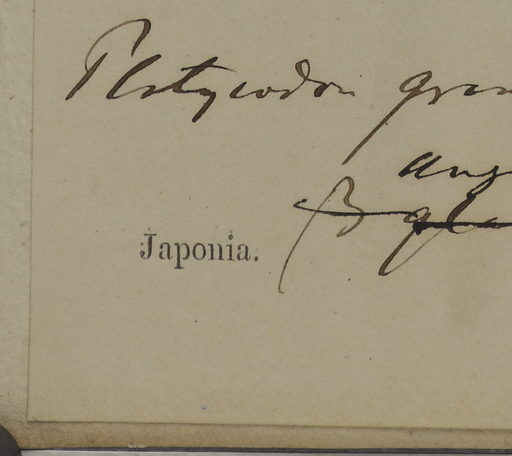 Platycodon gran
ang
β gla
Japonia.